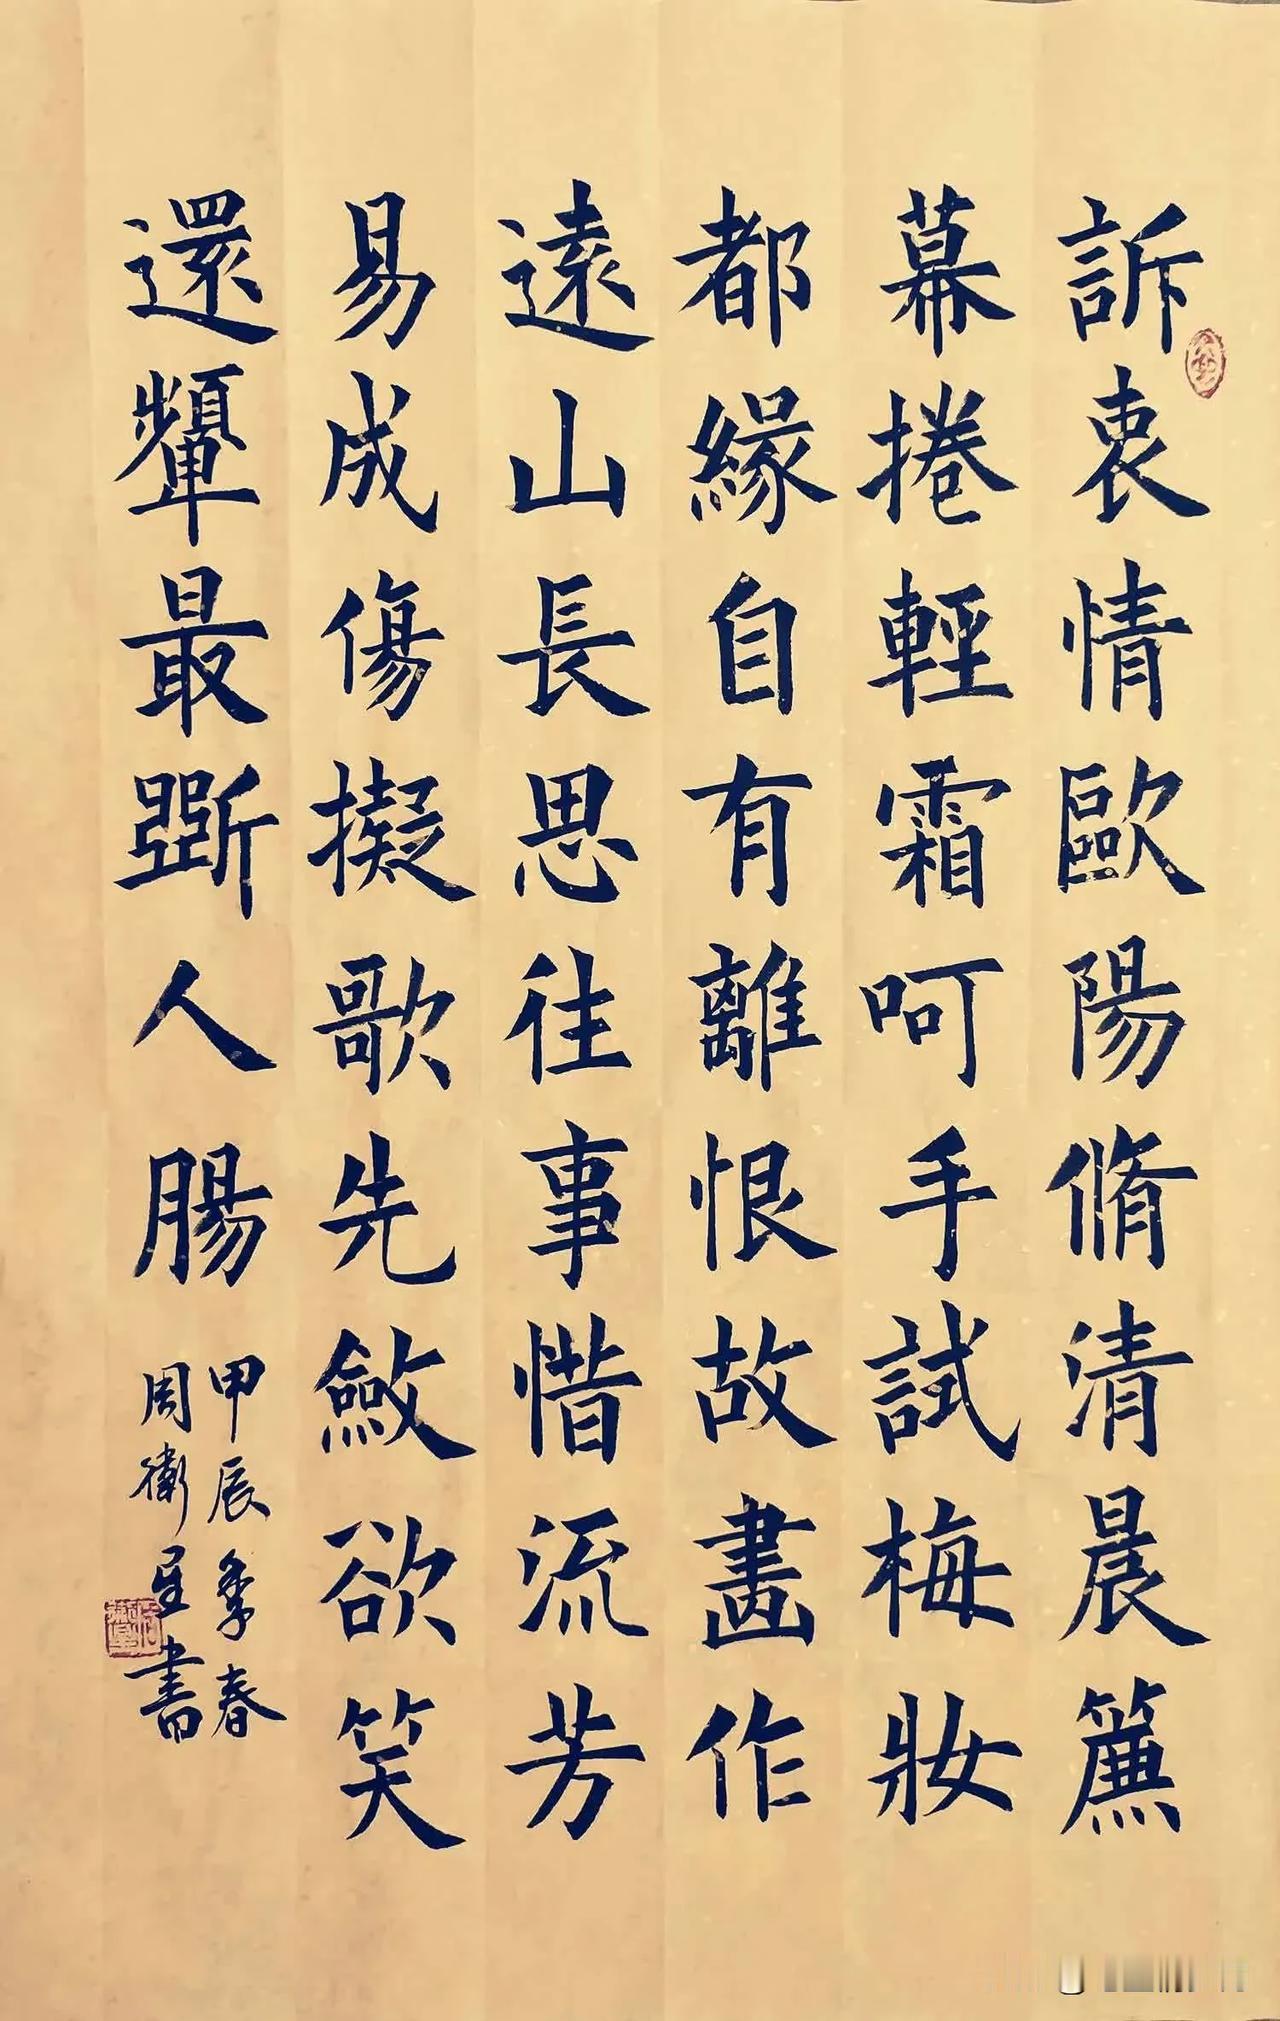 訴衷情歐陽脩清晨簾
幕捲輕霜呵手試梅妝
都緣自有離恨故畫作
遠山長思往事惜流芳
易成傷擬歌先斂欲笑
還顰最斷人腸
甲辰季春
周衛星書